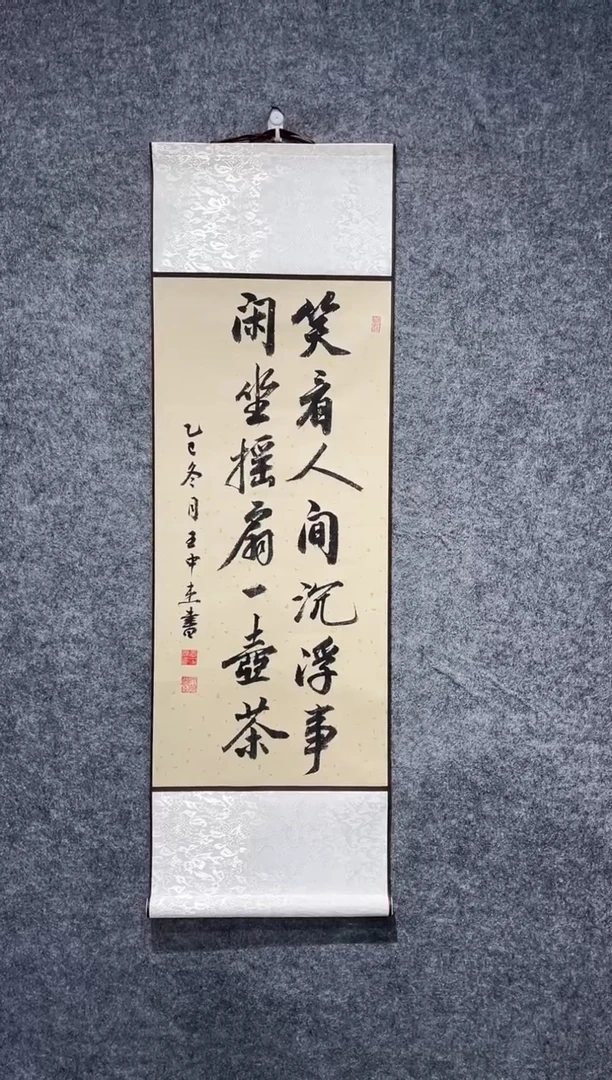 笑看人间沉浮事
闲坐摇扇一壶茶
乙巳冬月王中书